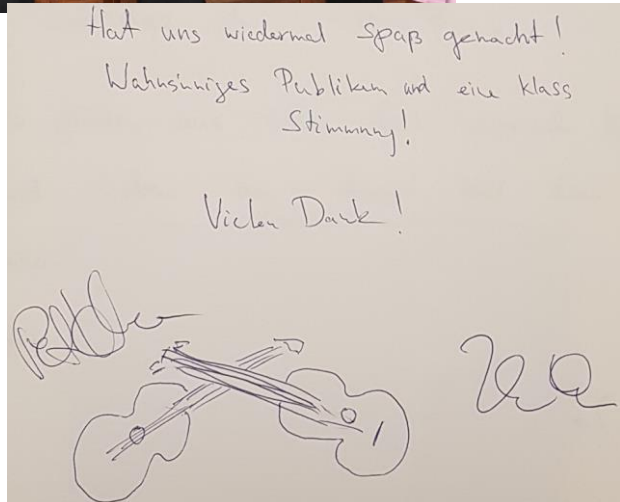 Hat uns wiedermal Spaß gemacht!
Wahnsinniges Publikum und eine klass
Stimmung!
Vielen Dank!